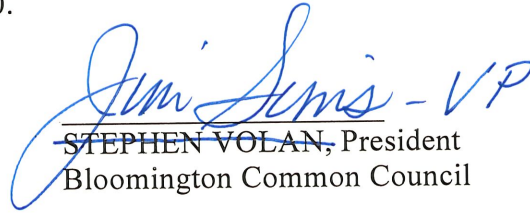 .
Jim Sims - VP
STEPHEN VOLAN, President
Bloomington Common Council